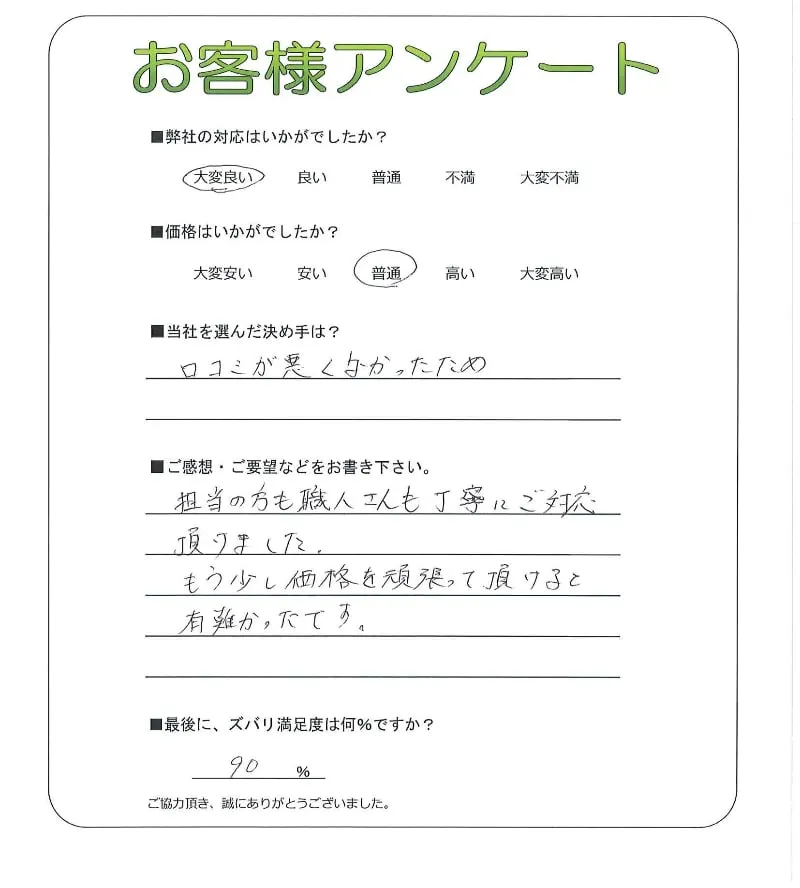 お客様アンケート
■弊社の対応はいかがでしたか？
大変良い 良い 普通 不満 大変不満
■価格はいかがでしたか？
大変安い 安い 普通 高い 大変高い
■当社を選んだ決め手は？
口コミが悪くなかったため
■ご感想・ご要望などをお書き下さい。
担当の方も職人さんも丁寧にご対応
頂けました。
もう少し価格を頑張って頂けると
有難かったです。
■最後に、ズバリ満足度は何%ですか？
90 %
ご協力頂き、誠にありがとうございました。